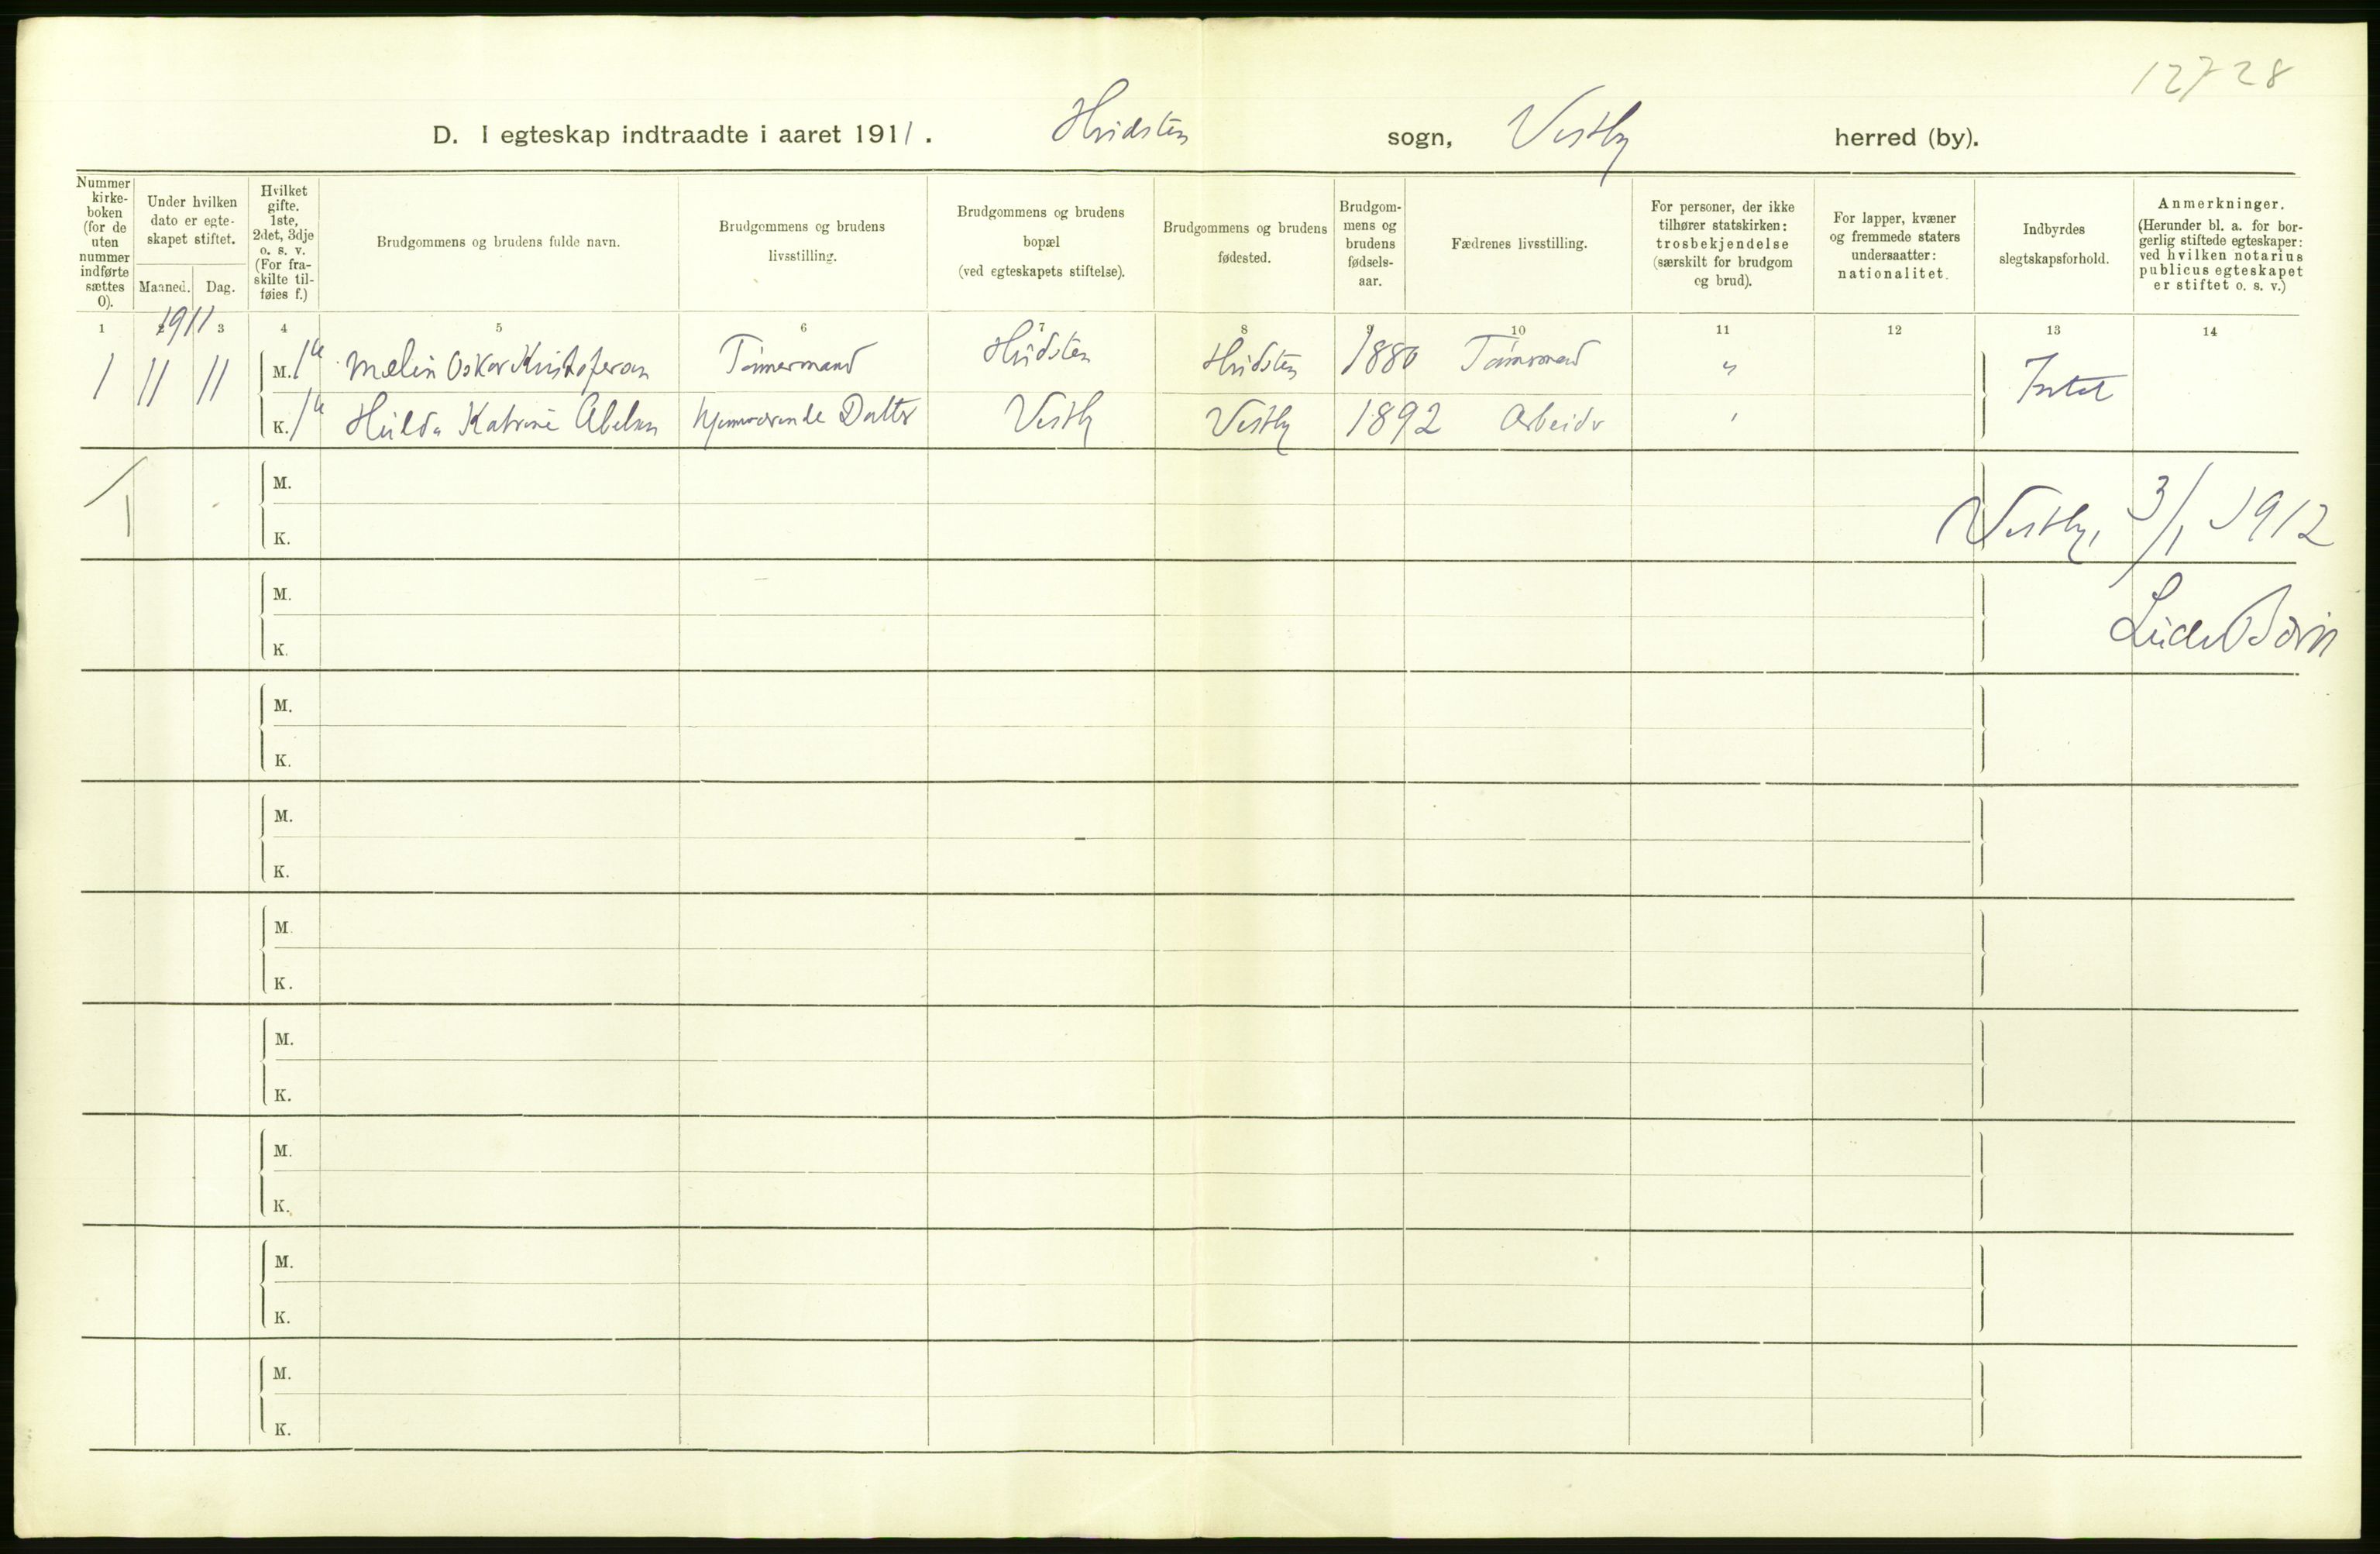 12728
D. I egteskap indtraadte i aaret 1911. Hvidsten sogn, Vestby herred (by).
Nummer
kirke-
boken
(for de
uten
nummer
indførte
sættes
0).
Under hvilken
dato er egte-
skapet stiftet.
Maaned. Dag.
Hvilket
gifte.
1ste,
2det, 3dje
o. s. v.
(For fra-
skilte til-
føies f.)
Brudgommens og brudens fulde navn.
Brudgommens og brudens
livsstilling.
Brudgommens og brudens
bopæl
(ved egteskapets stiftelse).
Brudgommens og brudens
fødested.
Brudgom-
mens og
brudens
fødsels-
aar.
Fædrenes livsstilling.
For personer, der ikke
tilhører statskirken:
trosbekjendelse
(særskilt for brudgom
og brud).
For lapper, kvæner
og fremmede staters
undersaatter:
nationalitet.
Indbyrdes
slegtskapsforhold.
Anmerkninger.
(Herunder bl. a. for bor-
gerlig stiftede egteskaper:
ved hvilken notarius
publicus egteskapet
er stiftet o. s. v.)
1 2 3 4 5 6 7 8 9 10 11 12 13 14
1911
1 11 11 M. 1ste Mælin Oskar Kristofersen Tømmermand Hvidsten Hvidsten 1880 Tømmermand " Intet
K. 1ste Hulda Katrine Abelsen hjemmeværende Datter Vestby Vestby 1892 Arbeider "
M.
K.
Vestby, 3/1 1912
M.
K.
M.
K.
M.
K.
M.
K.
M.
K.
M.
K.
M.
K.
M.
K.